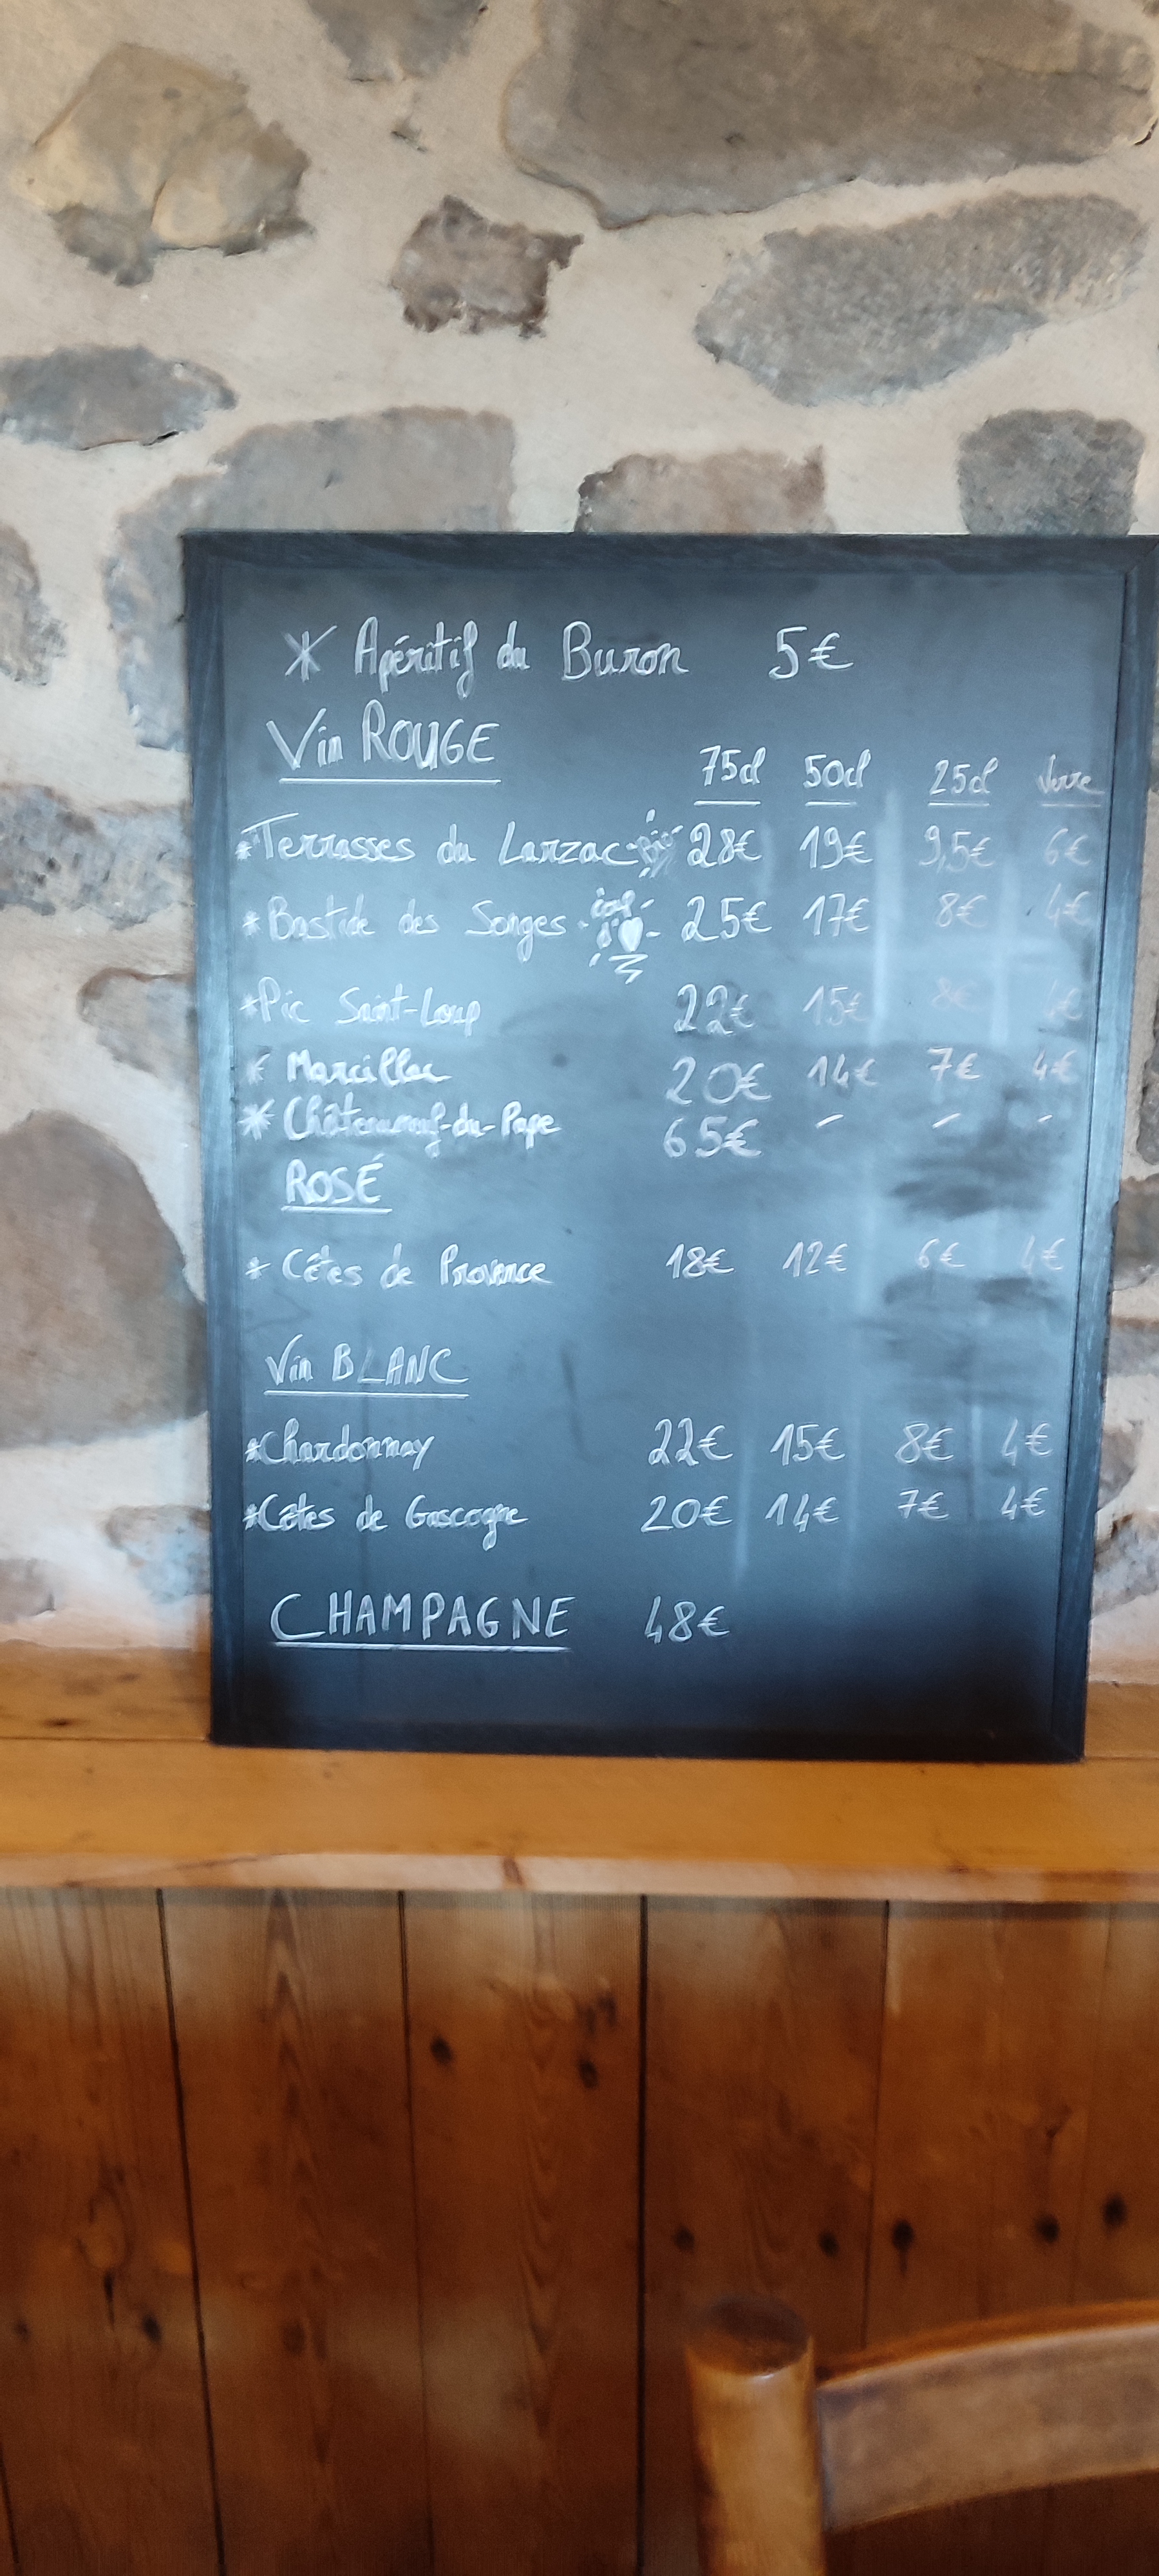 * Apéritif du Buron 5€
Vin ROUGE
75cl 50cl 25cl Verre
*Terrasses du Larzac Bio 28€ 19€ 9,5€ 6€
*Bastide des Songes - coup d' 25€ 17€ 8€ 4€
*Pic Saint-Loup 22€ 15€ 8€ 4€
* Marcillac 20€ 14€ 7€ 4€
* Châteauneuf-du-Pape 65€ - - -
ROSÉ
* Côtes de Provence 18€ 12€ 6€ 4€
Vin BLANC
*Chardonnay 22€ 15€ 8€ 4€
*Côtes de Gascogne 20€ 14€ 7€ 4€
CHAMPAGNE 48€